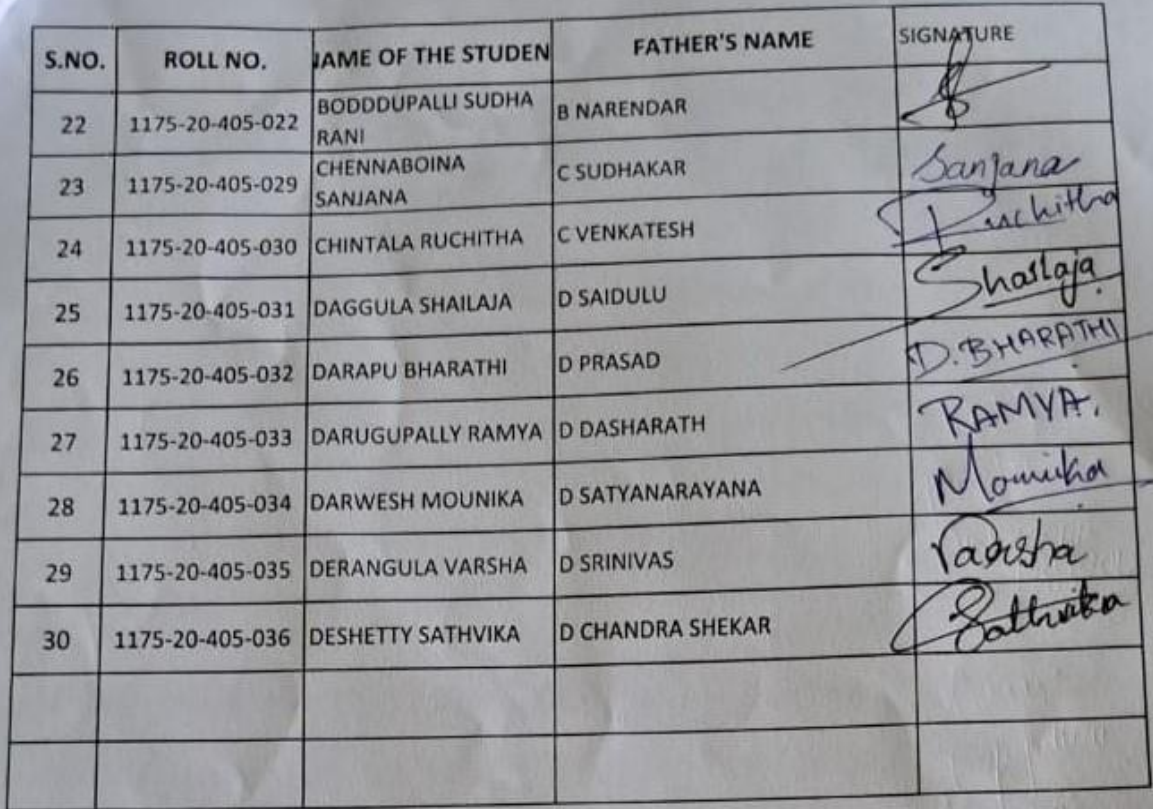 S.NO. ROLL NO. NAME OF THE STUDEN FATHER'S NAME SIGNATURE
22 1175-20-405-022 BODDDUPALLI SUDHA RANI B NARENDAR
23 1175-20-405-029 CHENNABOINA SANJANA C SUDHAKAR Sanjana
24 1175-20-405-030 CHINTALA RUCHITHA C VENKATESH Ruchitha
25 1175-20-405-031 DAGGULA SHAILAJA D SAIDULU Shailaja
26 1175-20-405-032 DARAPU BHARATHI D PRASAD D.BHARATHI
27 1175-20-405-033 DARUGUPALLY RAMYA D DASHARATH RAMYA.
28 1175-20-405-034 DARWESH MOUNIKA D SATYANARAYANA Mounika
29 1175-20-405-035 DERANGULA VARSHA D SRINIVAS Varsha
30 1175-20-405-036 DESHETTY SATHVIKA D CHANDRA SHEKAR Sathvika